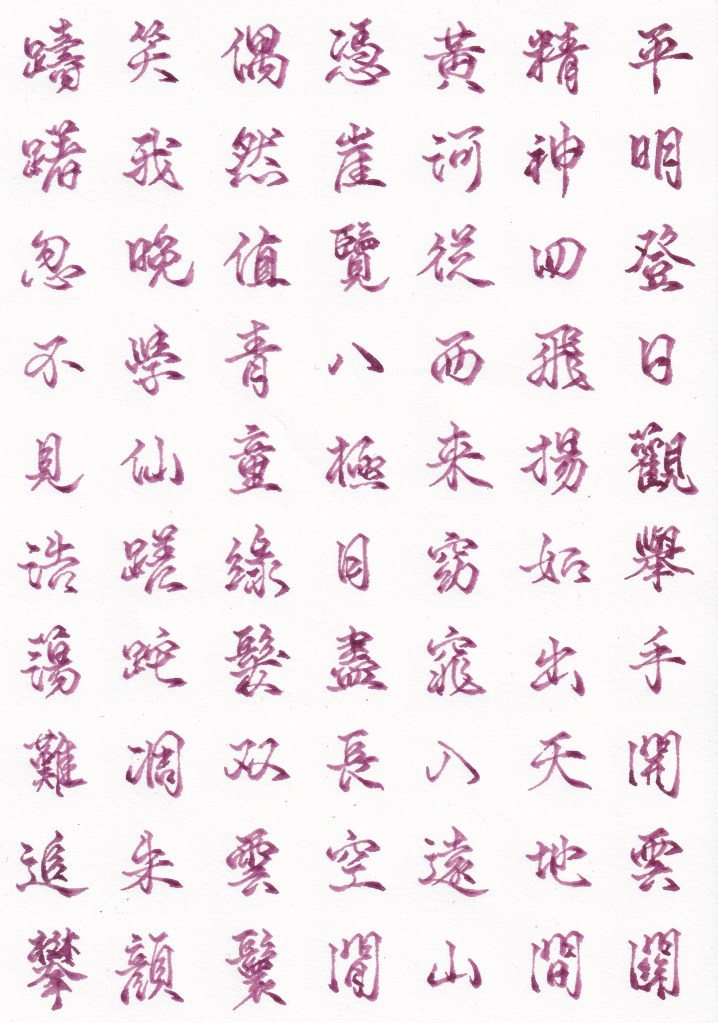 平明登日觀舉手開雲關
精神四飛揚如出天地間
黃河從西来窈窕入遠山
憑崖覽八極目盡長空閒
偶然值青童綠髮双雲鬟
笑我晚學仙蹉跎凋朱顔
躊躇忽不見浩蕩難追攀